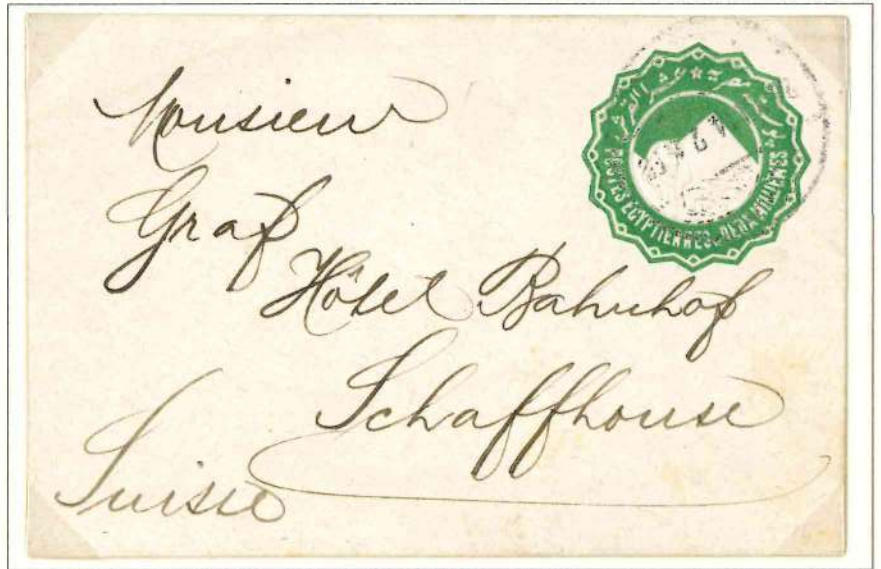 Monsieur
Graf
Hôtel Bahnhof
Schaffhouse
Suisse
POSTES EGYPTIENNES